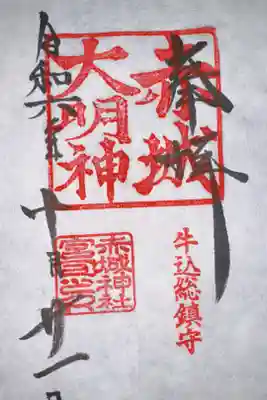 奉拝
赤城
大明神
牛込総鎮守
赤城神社
宮司之印
令和 年十月廿一日